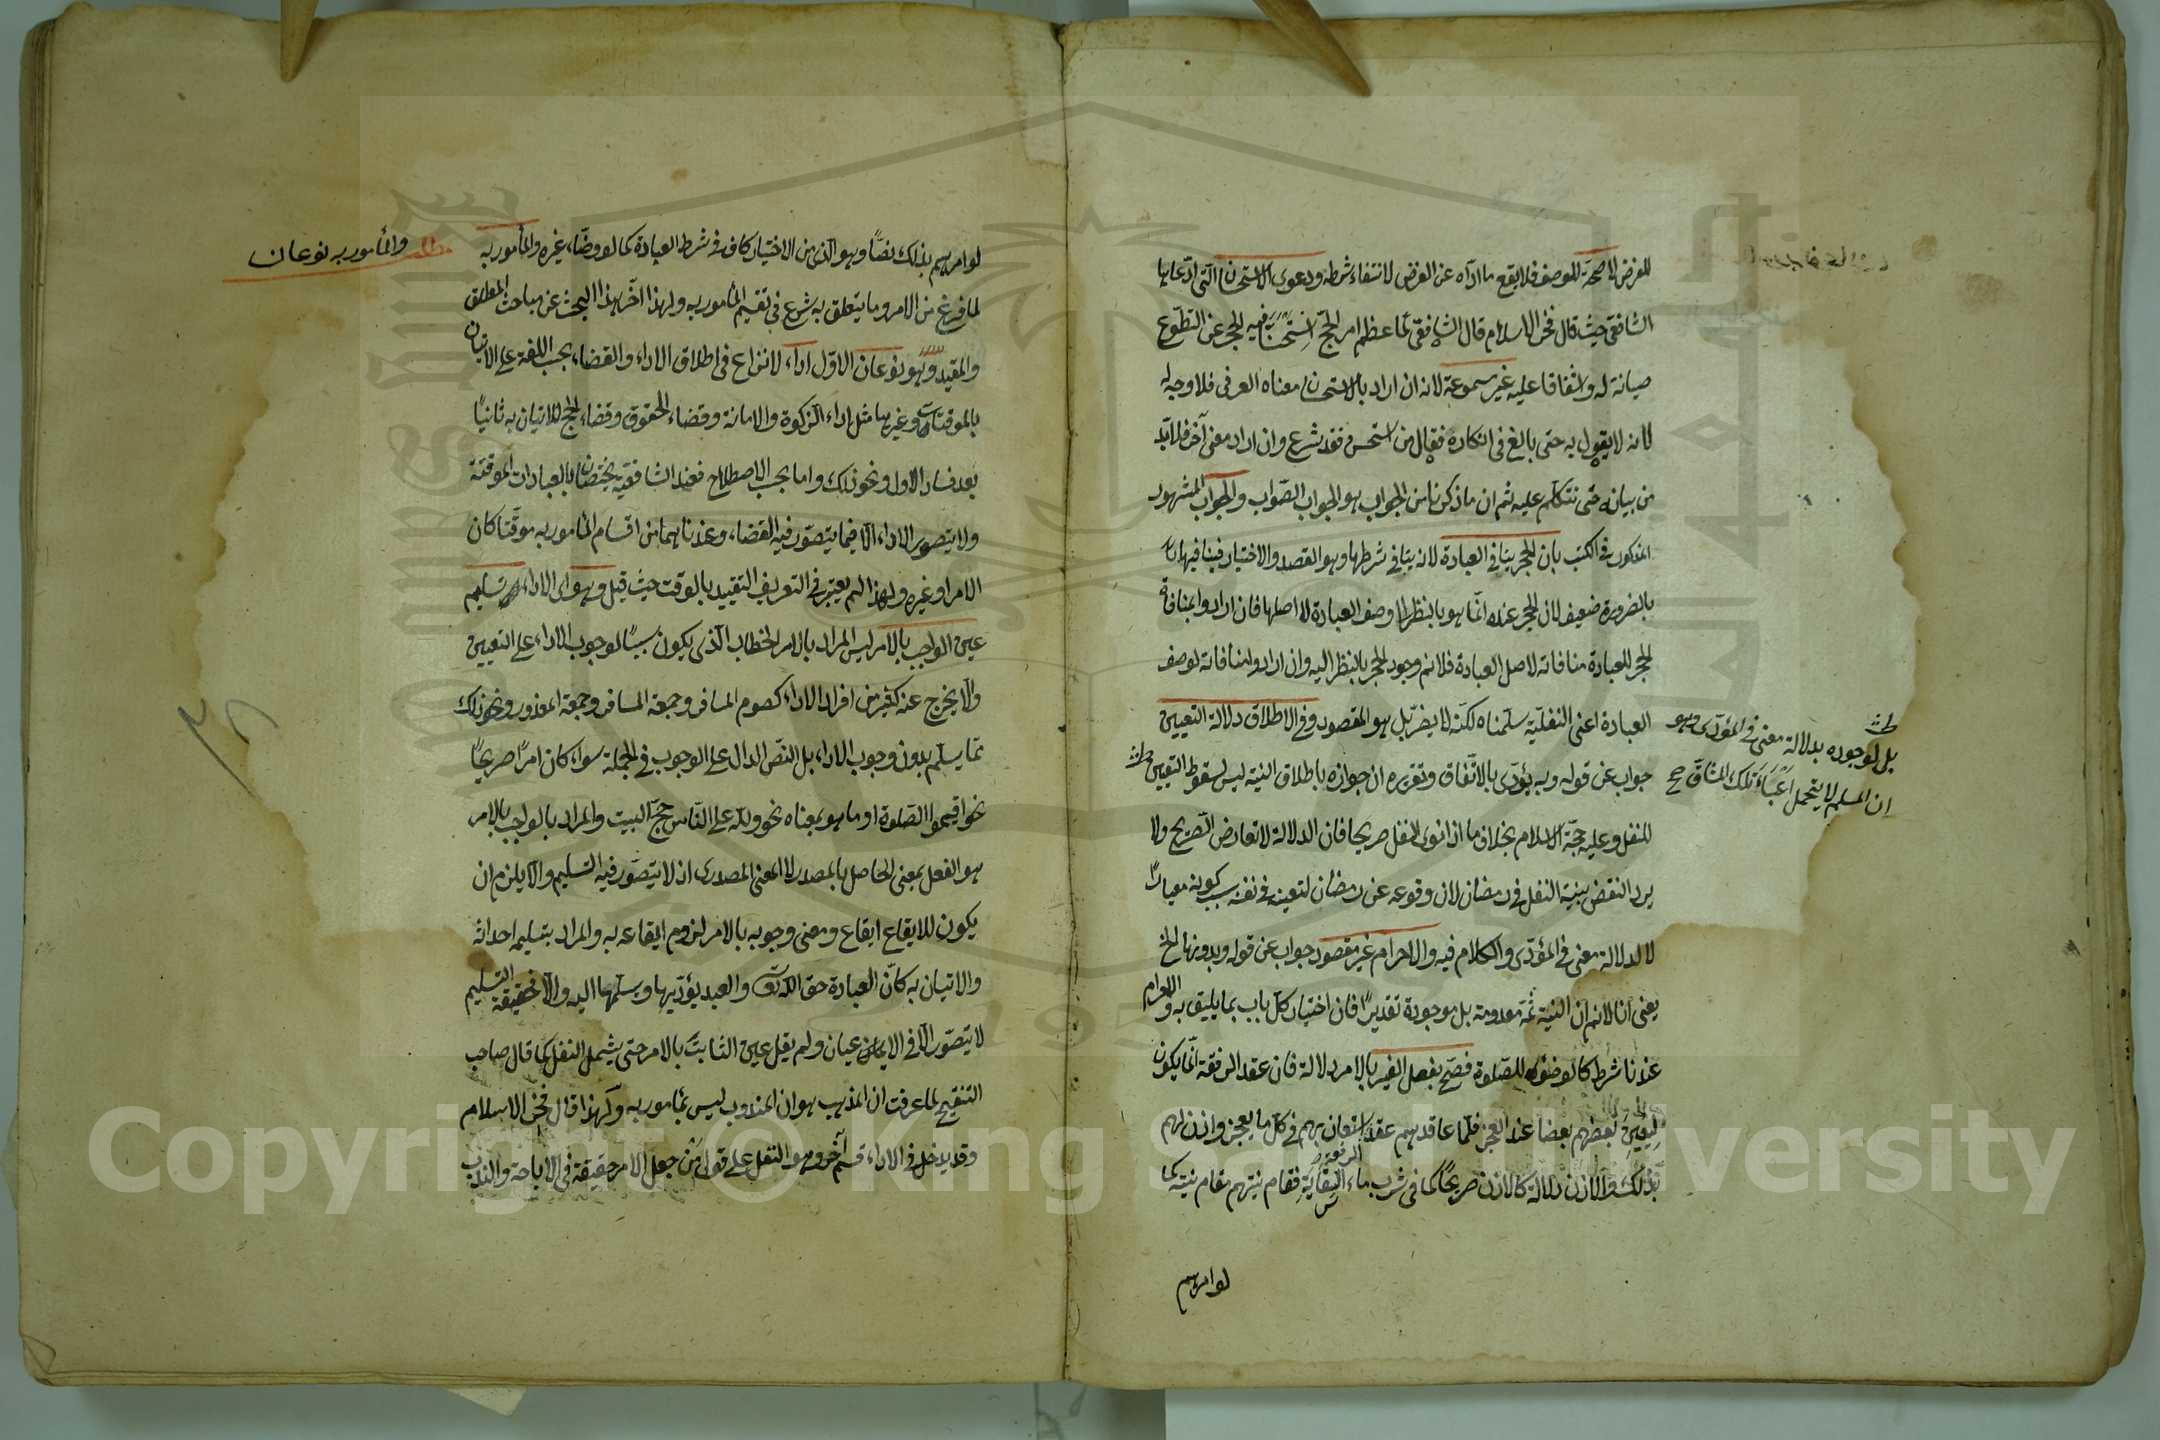 للفرض لا صحة للوصف فلا يقع ما اداه عن الفرض لانتفاء شرطه ودعوى الاستحسان التي ادعاها
الشافعي حيث قال فخر الاسلام قال الشافعي لما عظم امر الحج استحسنا فيه الحجر عن التطوع
صيانة له واشفاقا عليه غير مسموعة لانه ان اراد بالاستحسان معناه العرفي فلا وجه له
لانه لا يقول به حتى بالغ في انكاره فقال من استحسن فقد شرع وان اراد معنى آخر فلا بد
من بيانه حتى نتكلم عليه ثم ان ما ذكرنا من الجواب هو الجواب الصواب والجواب المشهور
المذكور في الكتب بان الحجر ينافي العبادة لانه ينافي شرطها وهو القصد والاختيار فينافيها
بالضرورة ضعيف لان الحجر عنده انما هو بالنظر الى وصف العبادة لا اصلها فان ارادوا بمنافاة
الحجر للعبادة منافاته لاصل العبادة فلا نم وجود الحجر بالنظر اليه وان ارادوا منافاته لوصف
العبادة اعني النفلية سلمناه لكنه لا يضر بل هو المقصود وفي الاطلاق دلالة التعيين
جواب عن قوله وبه يؤدى بالاتفاق وتقريره ان جوازه باطلاق النية ليس لسقوط التعيين
بل لوجوده بدلالة معنى في المؤدى وهو
ان المسلم لا يتحمل اعباء تلك المشاق صح
للنفل وعليه حجة الاسلام بخلاف ما اذا نوى النفل صريحا فان الدلالة لا تعارض الصريح ولا
يرد النقض بنية النفل في رمضان لان وقوعه عن رمضان لتعينه في نفسه بسبب كونه معيارا
لا لدلالة معنى في المؤدى والكلام فيه والاحرام غير مقصود جواب عن قوله وبدونها الخ
يعني انا لا نم ان النية ثمة معدومة بل موجودة تقديرا فان اختيار كل باب بما يليق به والاحرام
عندنا شرط كالوضوء للصلوة فصح بفعل الغير بالامر دلالة فان عقد الرفقة انما يكون
ليعين بعضهم بعضا عند العجز فلما عاقدهم عقد الرفقة استعان بهم في كل ما يعجز واذن لهم
بذلك والاذن دلالة كالاذن صريحا كما في شرب ماء السقاية فقام نيتهم مقام نيته كما
لو امرهم
مطلب والمأمور به نوعان
لو امرهم بذلك نصا وهو الذي من الاختيار كاف في شرط العبادة كما لو وضأه غيره والمأمور به
لما فرغ من الامر وما يتعلق به شرع في تقسيم المأمور به ولهذا اخر هذا البحث عن مباحث المطلق
والمقيد وهو نوعان الاول اداء لا نزاع في اطلاق الاداء والقضاء بحسب اللغة على الاتيان
بالموقتات وغيرها مثل اداء الزكوة والامانة وقضاء الحقوق وقضاء الحج للاتيان به ثانيا
بعد فساد الاول ونحو ذلك واما بحسب الاصطلاح فعند الشافعية يختصان بالعبادات الموقتة
ولا يتصور الاداء الا فيما يتصور فيه القضاء وعندنا هما من اقسام المأمور به موقتا كان
الامر او غيره ولهذا لم يعتبر في التعريف التقييد بالوقت حيث قيل وهو اي الاداء تسليم
عين الواجب بالامر ليس المراد بالامر الخطاب الذي يكون سببا لوجوب الاداء على التعيين
والا يخرج عنه كثير من افراد الاداء كصوم المسافر وجمعة المسافر وجمعة المعذور ونحو ذلك
مما يسلم بدون وجوب الاداء بل النص الدال على الوجوب في الجملة سواء كان امرا صريحا
نحو اقيموا الصلوة او ما هو بمعناه نحو ولله على الناس حج البيت والمراد بالواجب بالامر
هو الفعل بمعنى الحاصل بالمصدر لا المعنى المصدري اذ لا يتصور فيه التسليم والا يلزم ان
يكون للايقاع ايقاع ومعنى وجوبه بالامر لزوم ايقاعه به والمراد بتسليمه احداثه
والاتيان به كان العبادة حق الله تعالى والعبد يؤديها ويسلمها اليه والا فحقيقة التسليم
لا يتصور الا في الاعيان ولم يقل عين الثابت بالامر حتى يشمل النفل كما قال صاحب
التنقيح لما عرفت ان المذهب هو ان المندوب ليس بمأمور به ولهذا قال فخر الاسلام
وقد يدخل في الاداء قسم آخر وهو النفل على قول من جعل الامر حقيقة في الاباحة والندب
Copyright © King Saud University